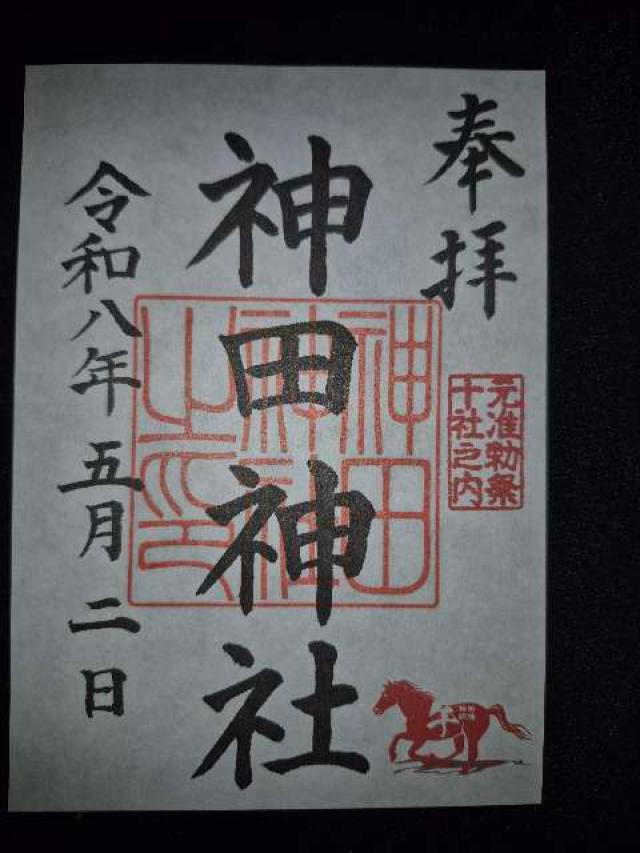 奉拝
元准勅祭
十社之内
神田神社
神田
神社
之印
午
令和八年五月二日